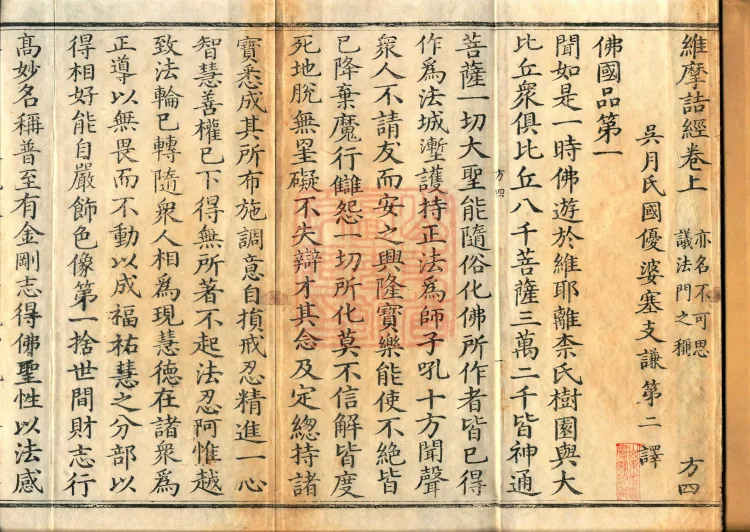 維摩詰經卷上 亦名不可思
議法門之稱 方四
吳月氏國優婆塞支謙第二譯
佛國品第一
聞如是一時佛遊於維耶離柰氏樹園與大
比丘衆俱比丘八千菩薩三萬二千皆神通
方四
菩薩一切大聖能隨俗化佛所作者皆已得
作爲法城塹護持正法爲師子吼十方聞聲
衆人不請友而安之興隆寶樂能使不絕皆
已降棄魔行讎怨一切所化莫不信解皆度
死地脫無罣礙不失辯才其念及定緫持諸
寶悉成其所布施調意自損戒忍精進一心
智慧善權已下得無所著不起法忍阿惟越
致法輪已轉隨衆人相爲現慧德在諸衆爲
正導以無畏而不動以成福祐慧之分部以
得相好能自嚴飾色像第一捨世間財志行
高妙名稱普至有金剛志得佛聖性以法感